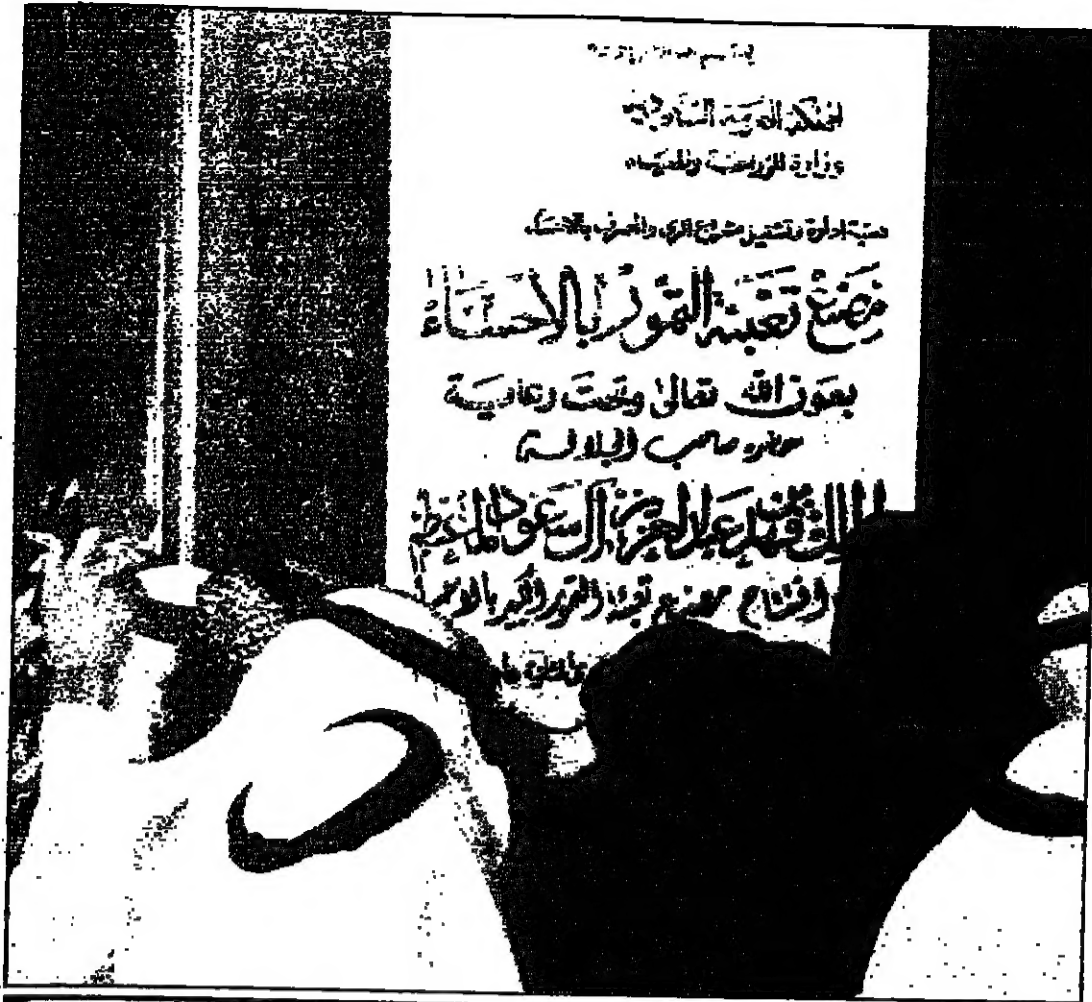 المملكة العربية السعودية
وزارة الزراعة والمياه
هيئة ادارة وتشغيل مشروع الري والصرف بالاحساء
مصنع تعبئة التمور بالاحساء
بعون الله تعالى وتحت رعاية
حضرة صاحب الجلالة
الملك فهد بن عبد العزيز آل سعود المعظم
افتتاح مصنع تعبئة التمور